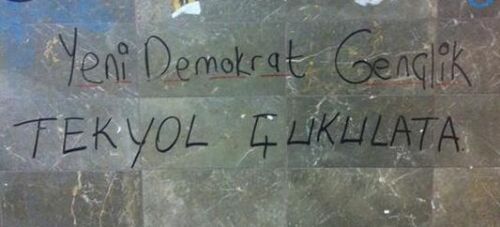 Yeni Demokrat Gençlik
TEKYOL ÇUKULATA.